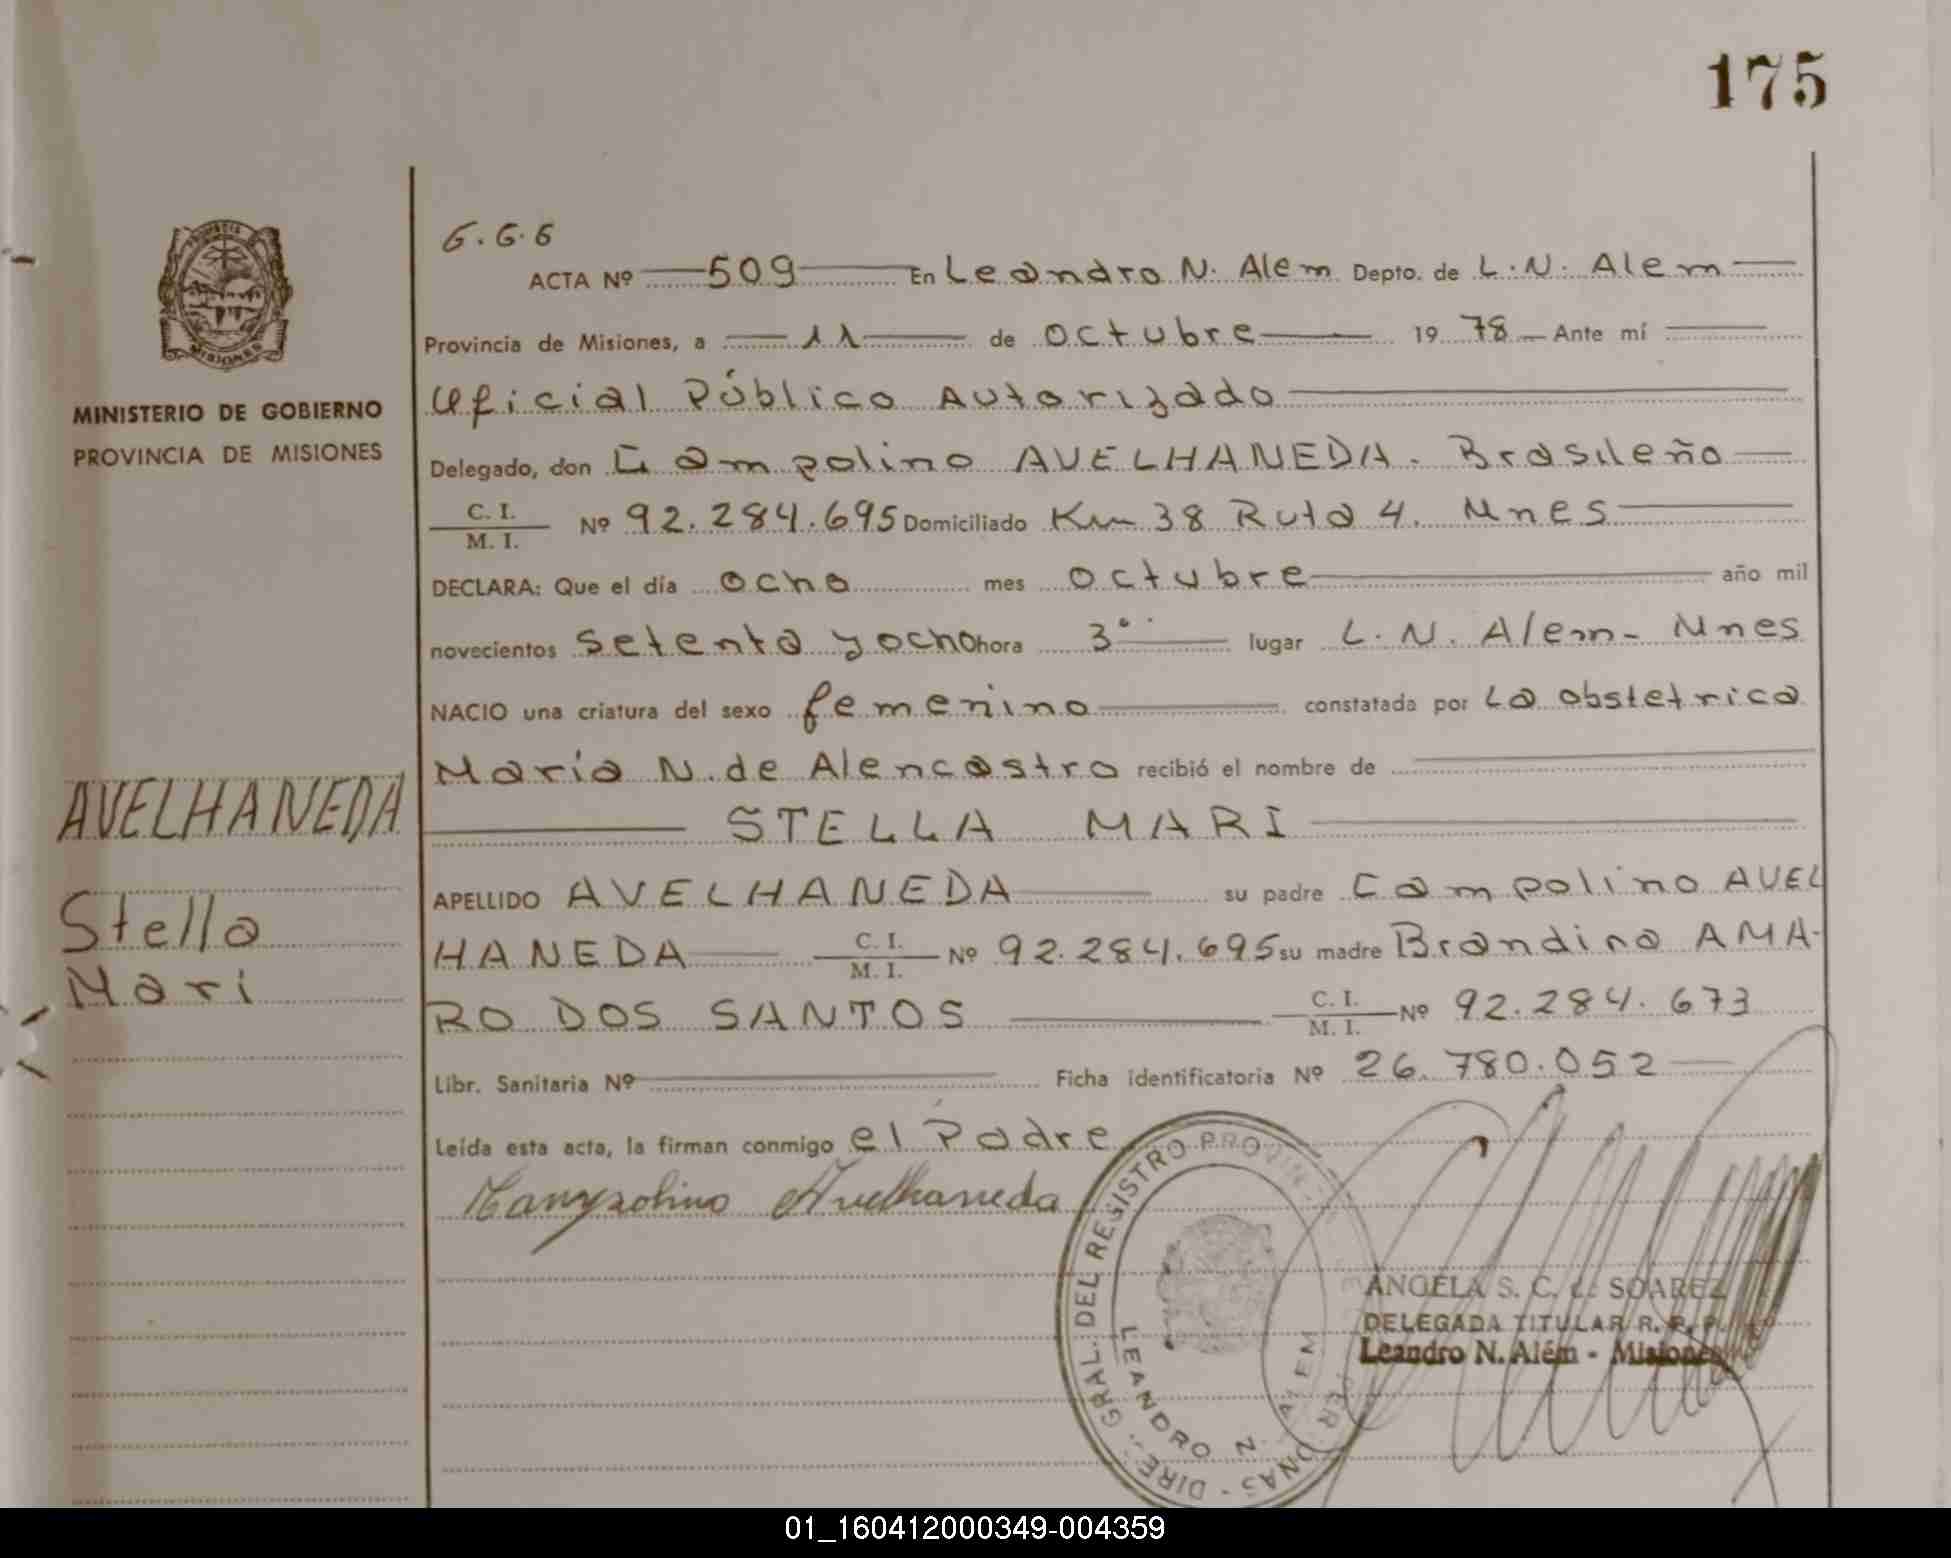 175
G.G.G
ACTA Nº 509 En Leandro N. Alem Depto. de L.N. Alem
Provincia de Misiones, a 11 de octubre 1978 Ante mí
Oficial Público Autorizado
Delegado, don Campolino AVELHANEDA. Brasileño
C. I.
M. I. Nº 92.284.695 Domiciliado Km 38 Ruta 4. Mnes
DECLARA: Que el día ocho mes octubre año mil
novecientos setenta y ocho hora 3°° lugar L.N. Alem- Mnes
NACIO una criatura del sexo femenino constatada por La obstetrica
Maria N. de Alencastro recibió el nombre de
STELLA MARI
APELLIDO AVELHANEDA su padre Campolino AVEL
HANEDA C. I. M. I. Nº 92.284.695 su madre Brandina AMA-
RO DOS SANTOS C. I. M. I. Nº 92.284.673
Libr. Sanitaria Nº Ficha identificatoria Nº 26.780.052
Leída esta acta, la firman conmigo el Padre
Campolino Avelhaneda
PROVINCIA DE
MISIONES
MINISTERIO DE GOBIERNO
PROVINCIA DE MISIONES
AVELHANEDA
Stella
Mari
DIRE. GRAL. DEL REGISTRO PROVIN
LEANDRO N. ALEM
ANGELA S. C. de SOAREZ
DELEGADA TITULAR R. P. P.
Leandro N. Além - Misiones
01_160412000349-004359